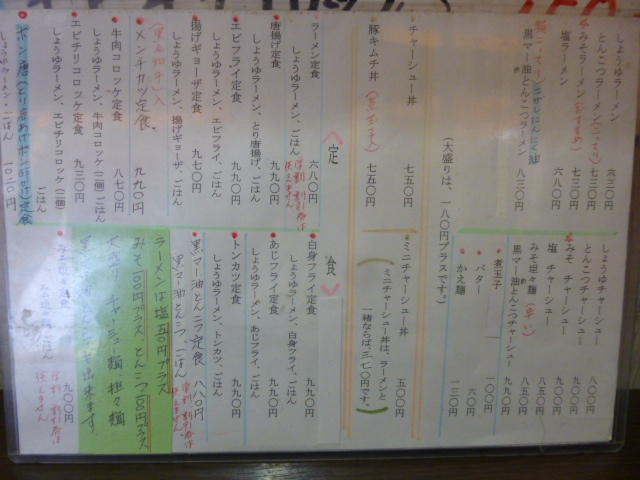 しょうゆラーメン 六三〇円
とんこつラーメン(こってり) 七三〇円
みそラーメン(おすすめ) 七三〇円
塩ラーメン 六八〇円
黒マー油とんこつラーメン 八三〇円
(大盛りは、一八〇円プラスです。)
チャーシュー丼 七五〇円
豚キムチ丼 七五〇円
しょうゆチャーシュー 八〇〇円
とんこつチャーシュー 九〇〇円
みそ チャーシュー 九〇〇円
塩 チャーシュー 八五〇円
みそ坦々麺(辛い) 八五〇円
黒マー油とんこつチャーシュー 九九〇円
煮玉子 一〇〇円
バター 六〇円
かえ麺 一三〇円
ミニチャーシュー丼 五〇〇円
ミニチャーシュー丼は、ラーメンと
一緒ならば、三七〇円です。
定食
ラーメン定食 六八〇円
しょうゆラーメン、ごはん
唐揚げ定食 九九〇円
しょうゆラーメン、とり唐揚げ、ごはん
エビフライ定食 九九〇円
しょうゆラーメン、エビフライ、ごはん
揚げギョーザ定食 九七〇円
しょうゆラーメン、揚げギョーザ、ごはん
メンチカツ定食 九九〇円
(黒毛和牛)入
牛肉コロッケ定食 八七〇円
しょうゆラーメン、牛肉コロッケ(一個)ごはん
エビチリコロッケ定食 九三〇円
しょうゆラーメン、エビチリコロッケ(二個)
ごはん
ポン唐(とり唐あげポン酢がけ)定食
しょうゆラーメン・ごはん 一〇二〇円
白身フライ定食 九九〇円
しょうゆラーメン、白身フライ、ごはん
あじフライ定食 九九〇円
しょうゆラーメン、あじフライ、ごはん
トンカツ定食 九九〇円
しょうゆラーメン、トンカツ、ごはん
黒マー油とんこつ定食 八八〇円
黒マー油とんこつ、ごはん
ラーメンは塩五〇円プラス
みそ100円プラス、とんこつ100円プラス
大盛り、チャーシュー麺、坦々麺
も出来ます
みそ坦々定食 九〇〇円
ごはん